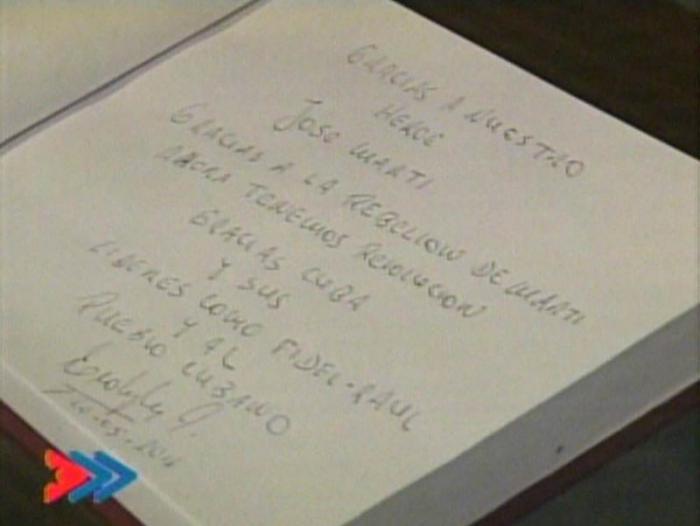 GRACIAS A NUESTRO
HEROE
JOSE MARTI
GRACIAS A LA REBELION DE MARTI
AHORA TENEMOS REVOLUCION
GRACIAS CUBA
Y SUS
LIDERES COMO FIDEL-RAUL
Y AL
PUEBLO CUBANO